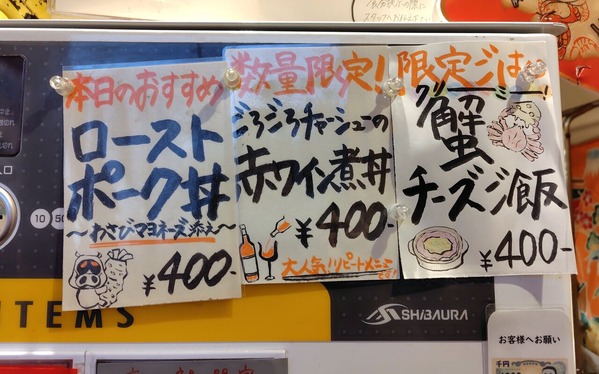 本日のおすすめ
ロースト
ポーク丼
～わさびマヨネーズ添え～
¥400-
数量限定!
ごろごろチャーシューの
赤ワイン煮丼
¥400-
大人気!リピートメニュー
限定ごはん
蟹
チーズご飯
¥400-
ITEMS
SHIBAURA
お客様へお願い
千円
10
50
入口
スタッフへお伝え下さい